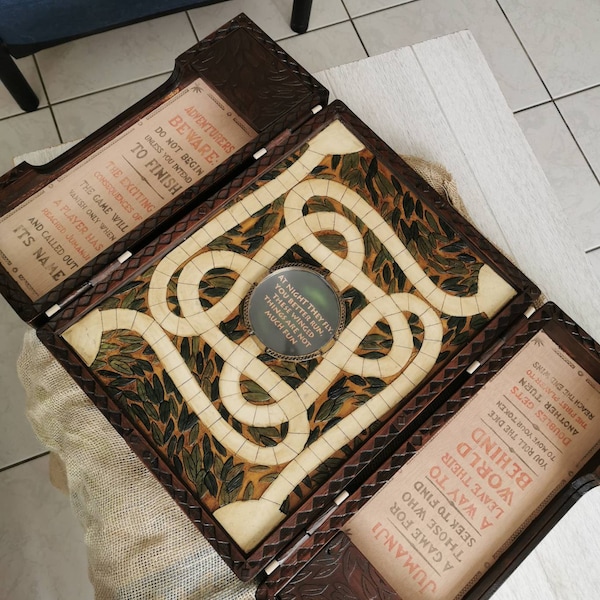 ADVENTURERS
BEWARE:
DO NOT BEGIN
UNLESS YOU INTEND
TO FINISH
THE EXCITING
CONSEQUENCES OF
THE GAME WILL
VANISH ONLY WHEN
A PLAYER HAS
REACHED JUMANJI
AND CALLED OUT
ITS NAME
AT NIGHT THEY FLY,
YOU BETTER RUN
THESE WINGED
THINGS ARE NOT
MUCH FUN
JUMANJI
A GAME FOR
THOSE WHO
SEEK TO FIND
A WAY TO
LEAVE THEIR
WORLD
BEHIND
YOU ROLL THE DICE
TO MOVE YOUR TOKEN
DOUBLES GETS
ANOTHER TURN
THE FIRST PLAYER TO
REACH THE END WINS